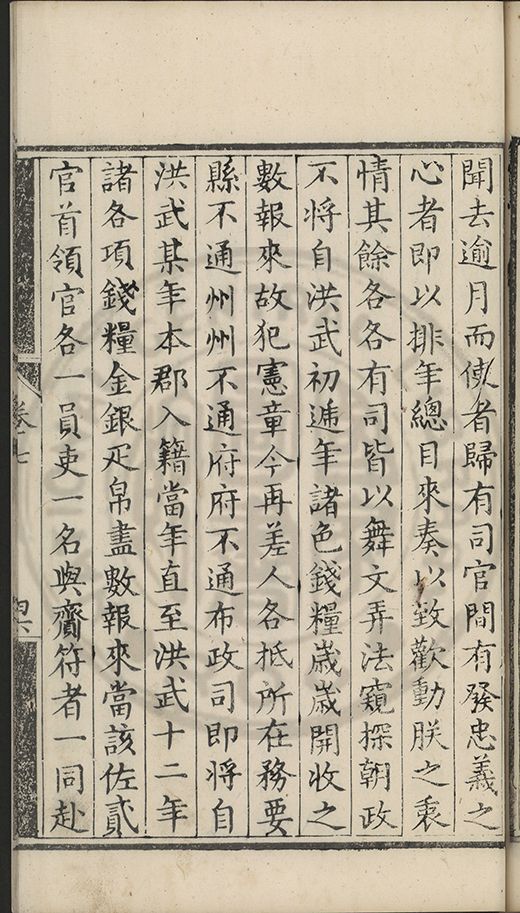 聞去逾月而使者歸有司官間有發忠義之
心者即以排年總目來奏以致歡動朕之衷
情其餘各各有司皆以舞文弄法窺探朝政
不將自洪武初遞年諸色錢糧歳歳開收之
數報來故犯憲章今再差人各抵所在務要
縣不通州州不通府府不通布政司即將自
洪武某年本郡入籍當年直至洪武十二年
諸各項錢糧金銀疋帛盡數報來當該佐貳
官首領官各一員吏一名與齎符者一同赴
卷七